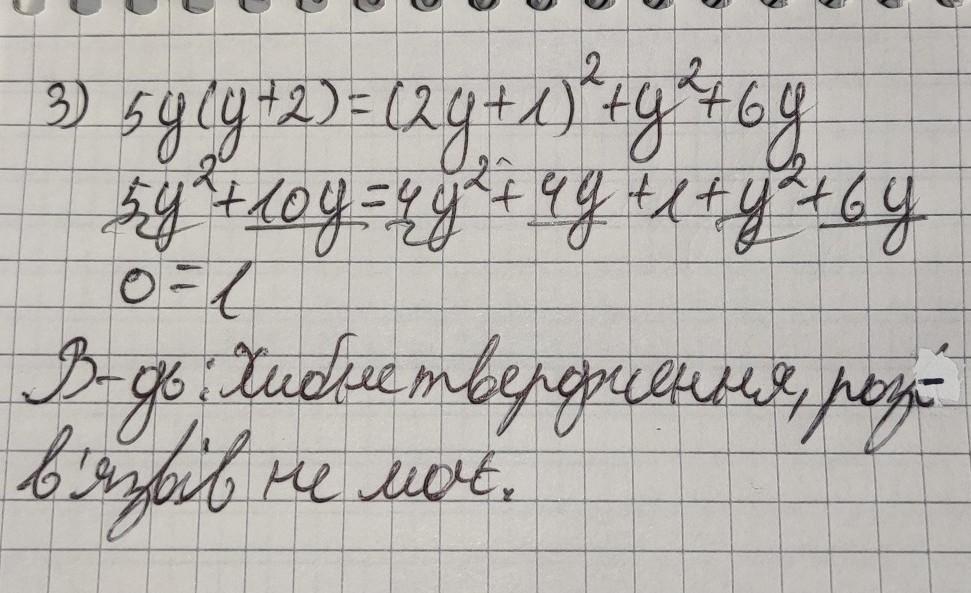 3) 5y(y+2)=(2y+1)²+y²+6y
5y²+10y=4y²+4y+1+y²+6y
0=1
В-дь: Хибне твердження, роз-
в'язків не має.